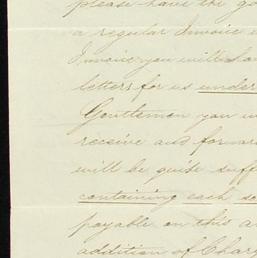 please have the go
a regular Invoice
Invoice you will
letters for us under
Gentlemen you w
receive and forward
will be quite suff
containing each se
payable on this a
addition of Charg